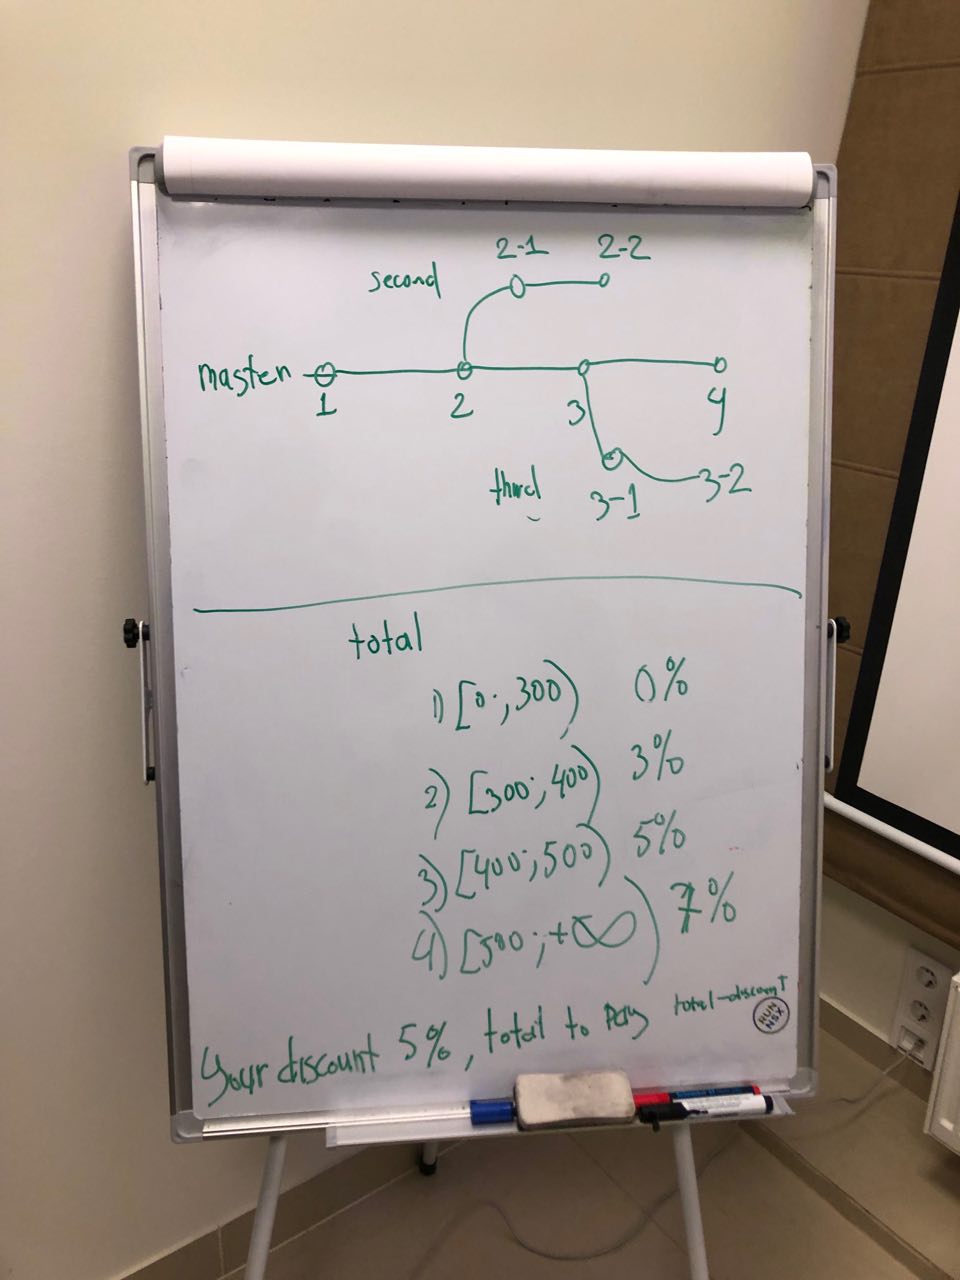 2-1 2-2
second
master
1 2 3 4
third 3-1 3-2
total
1) [0;300) 0%
2) [300;400) 3%
3) [400;500) 5%
4) [500;+∞) 7%
Your discount 5%, total to pay total-discount
RUN
NSX